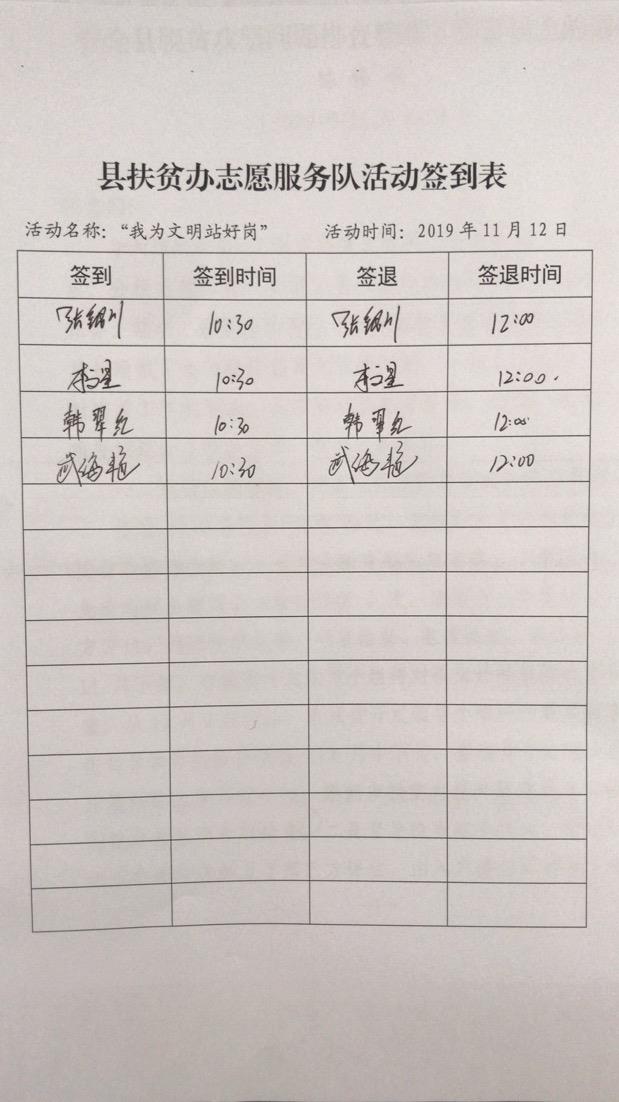 县扶贫办志愿服务队活动签到表
活动名称：“我为文明站好岗” 活动时间：2019年11月12日
签到 签到时间 签退 签退时间
张 川 10:30 张 川 12:00
李 星 10:30 李 星 12:00.
韩翠红 10:30 韩翠红 12:00
武海 10:30 武海 12:00